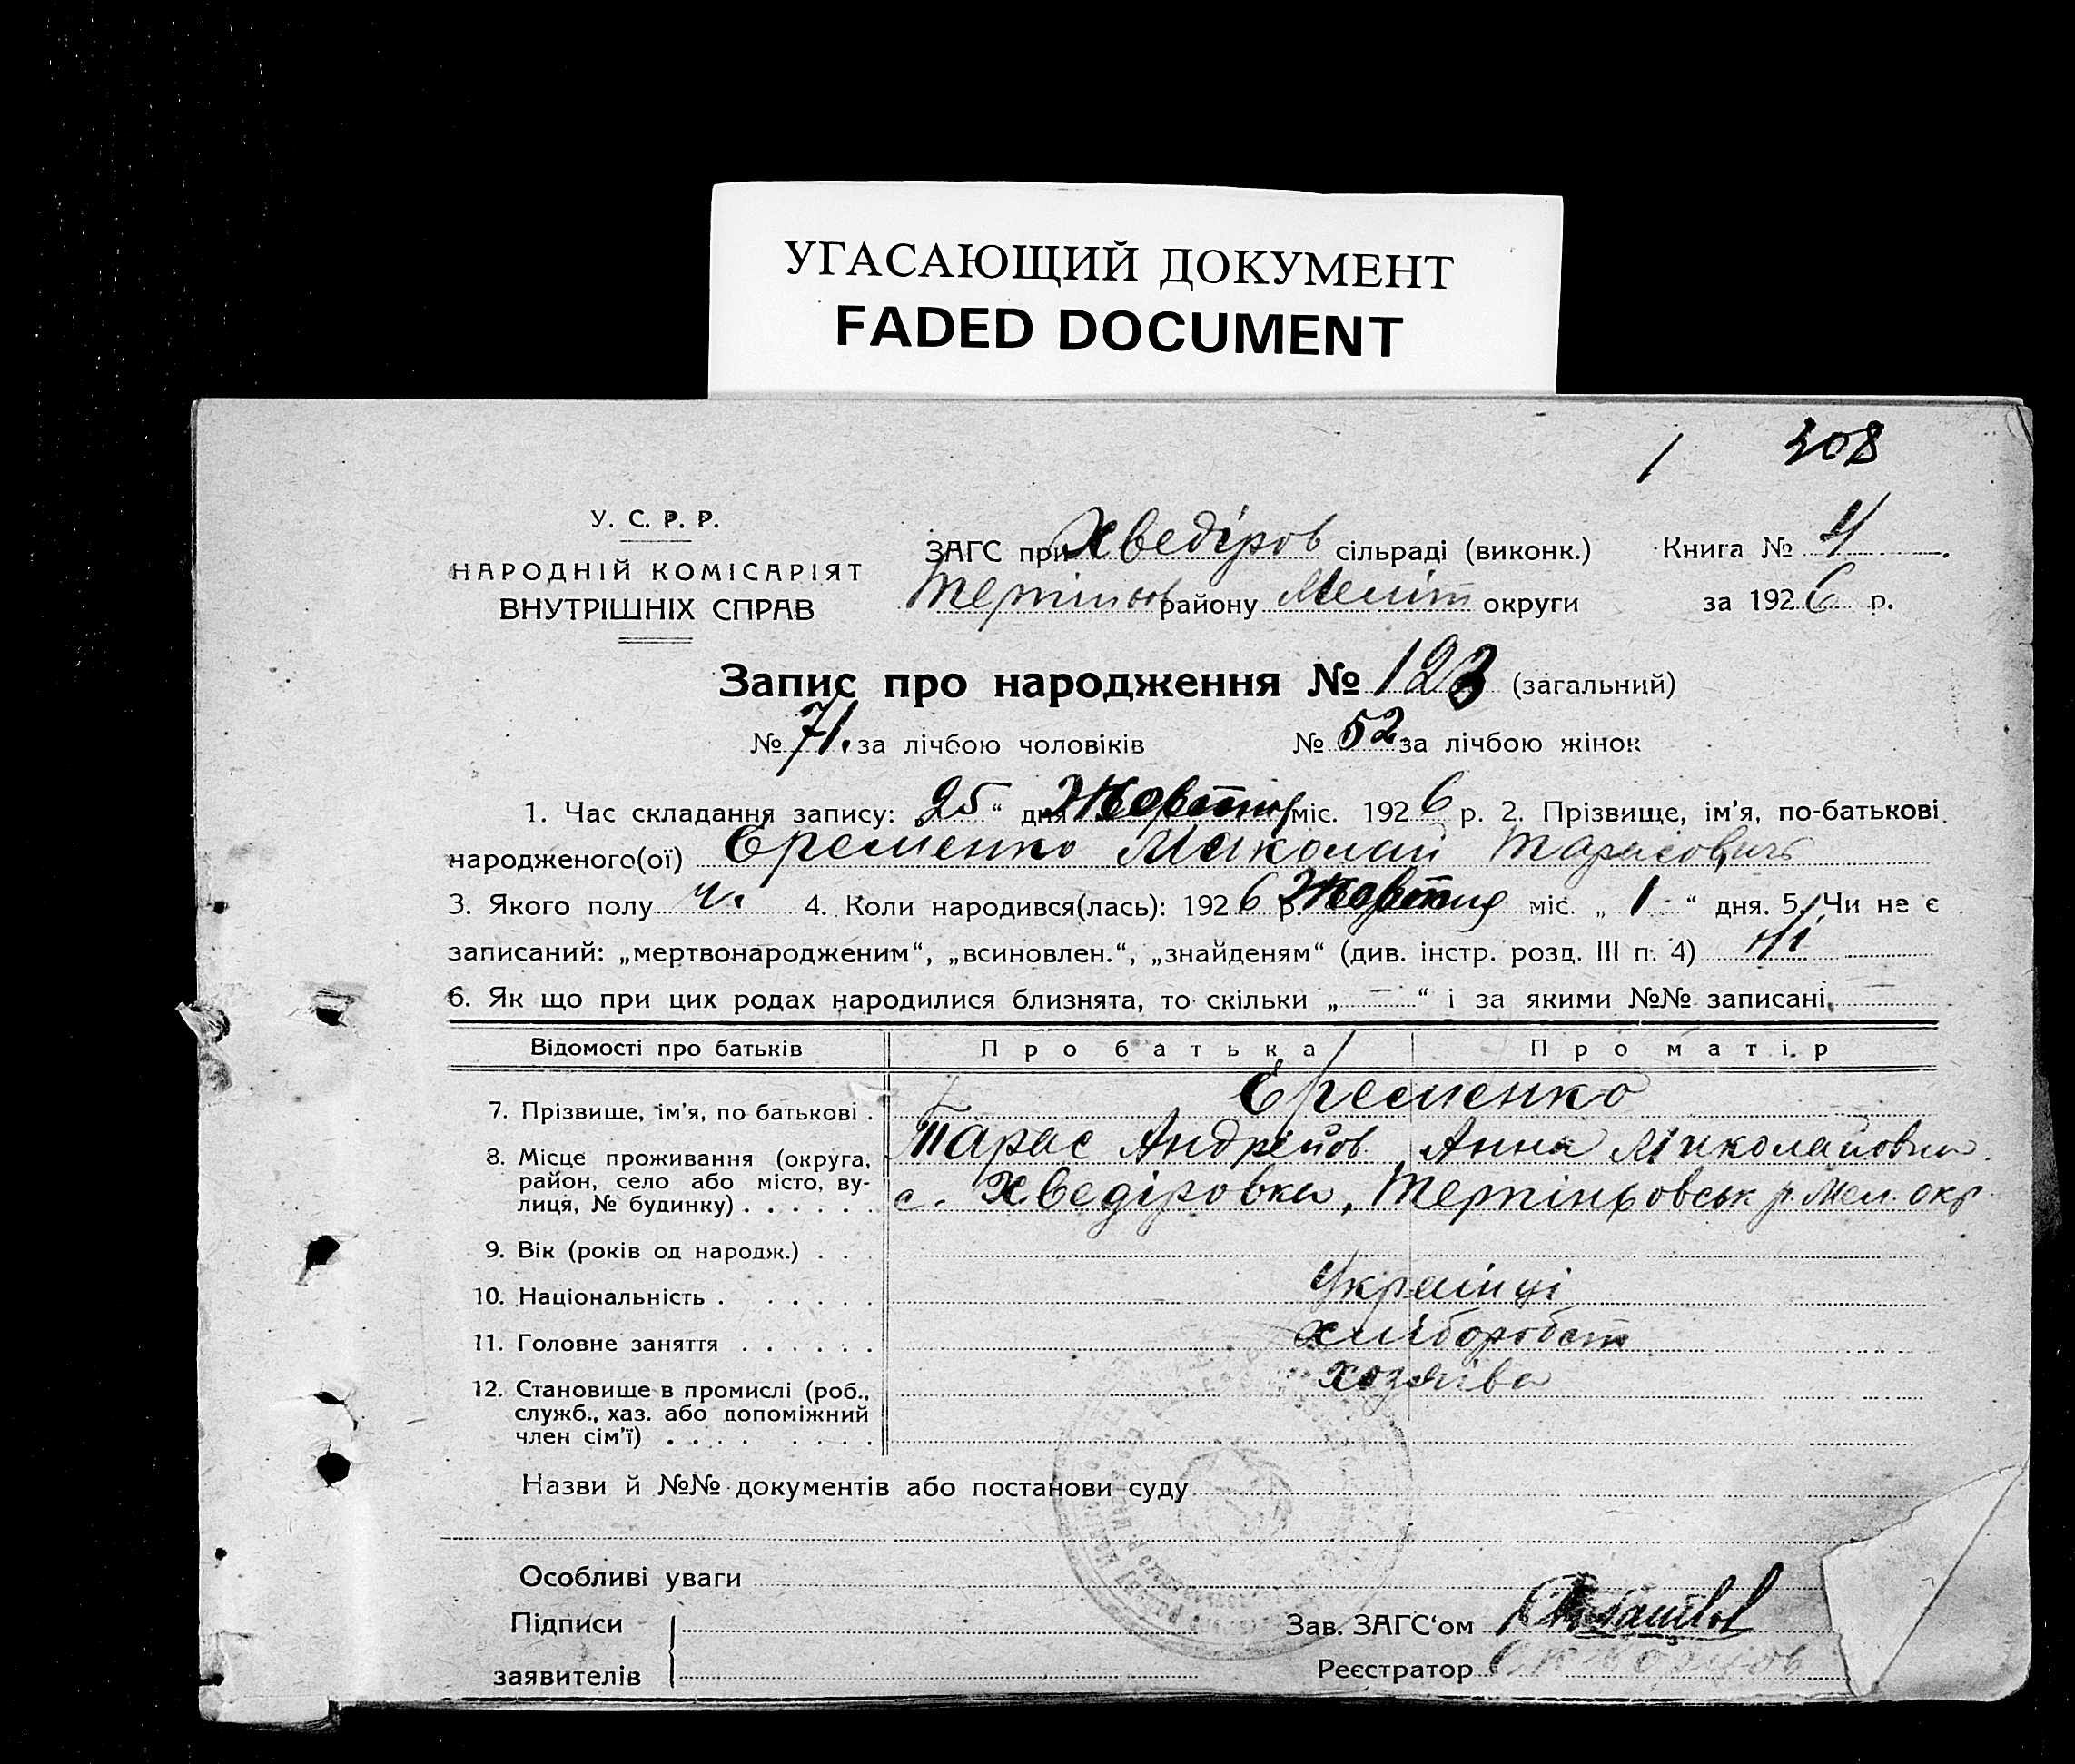 УГАСАЮЩИЙ ДОКУМЕНТ
FADED DOCUMENT
1 308
У. С. Р. Р.
НАРОДНІЙ КОМІСАРІЯТ
ВНУТРІШНІХ СПРАВ
ЗАГС при Хведіров сільраді (виконк.) Книга № 4
району Меліт округи за 1926 р.
Запис про народження № 123 (загальний)
№ 71. за лічбою чоловіків № 52 за лічбою жінок
1. Час складання запису: „25“ дня Жовтня міс. 1926 р. 2. Прізвище, ім'я, по-батькові
народженого(ої) Єременко Миколай Тарасович
3. Якого полу ч. 4. Коли народився(лась): 1926 р. Жовтня міс. „1“ дня. 5. Чи не є
записаний: „мертвонародженим“, „всиновлен.“, „знайденям“ (див. інстр. розд. III п. 4) ні
6. Як що при цих родах народилися близнята, то скільки „ — “ і за якими №№ записані —
Відомості про батьків Про батька Про матір
7. Прізвище, ім'я, по батькові . Єременко
Тарас Андрійов Анна Миколайовна
8. Місце проживання (округа, район, село або місто, вулиця, № будинку) . . . . . . с. Хведіровка, Терпіньовськ р. Мел. окр.
9. Вік (років од народж.) . . .
10. Національність . . . . . . Українці
11. Головне заняття . . . . . . хліборобст
12. Становище в промислі (роб., служб., хаз. або допоміжний член сім'ї) . . . . хозяіва
Назви й №№ документів або постанови суду
Особливі уваги
Підписи
заявителів
Зав. ЗАГС‘ом
Реєстратор